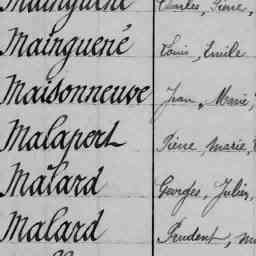 Mainguené Charles, Pierre,
Mainguené Louis, Emile
Maisonneuve Jean, Marie,
Malapert Pierre, Marie,
Malard Georges, Julien,
Malard Prudent,